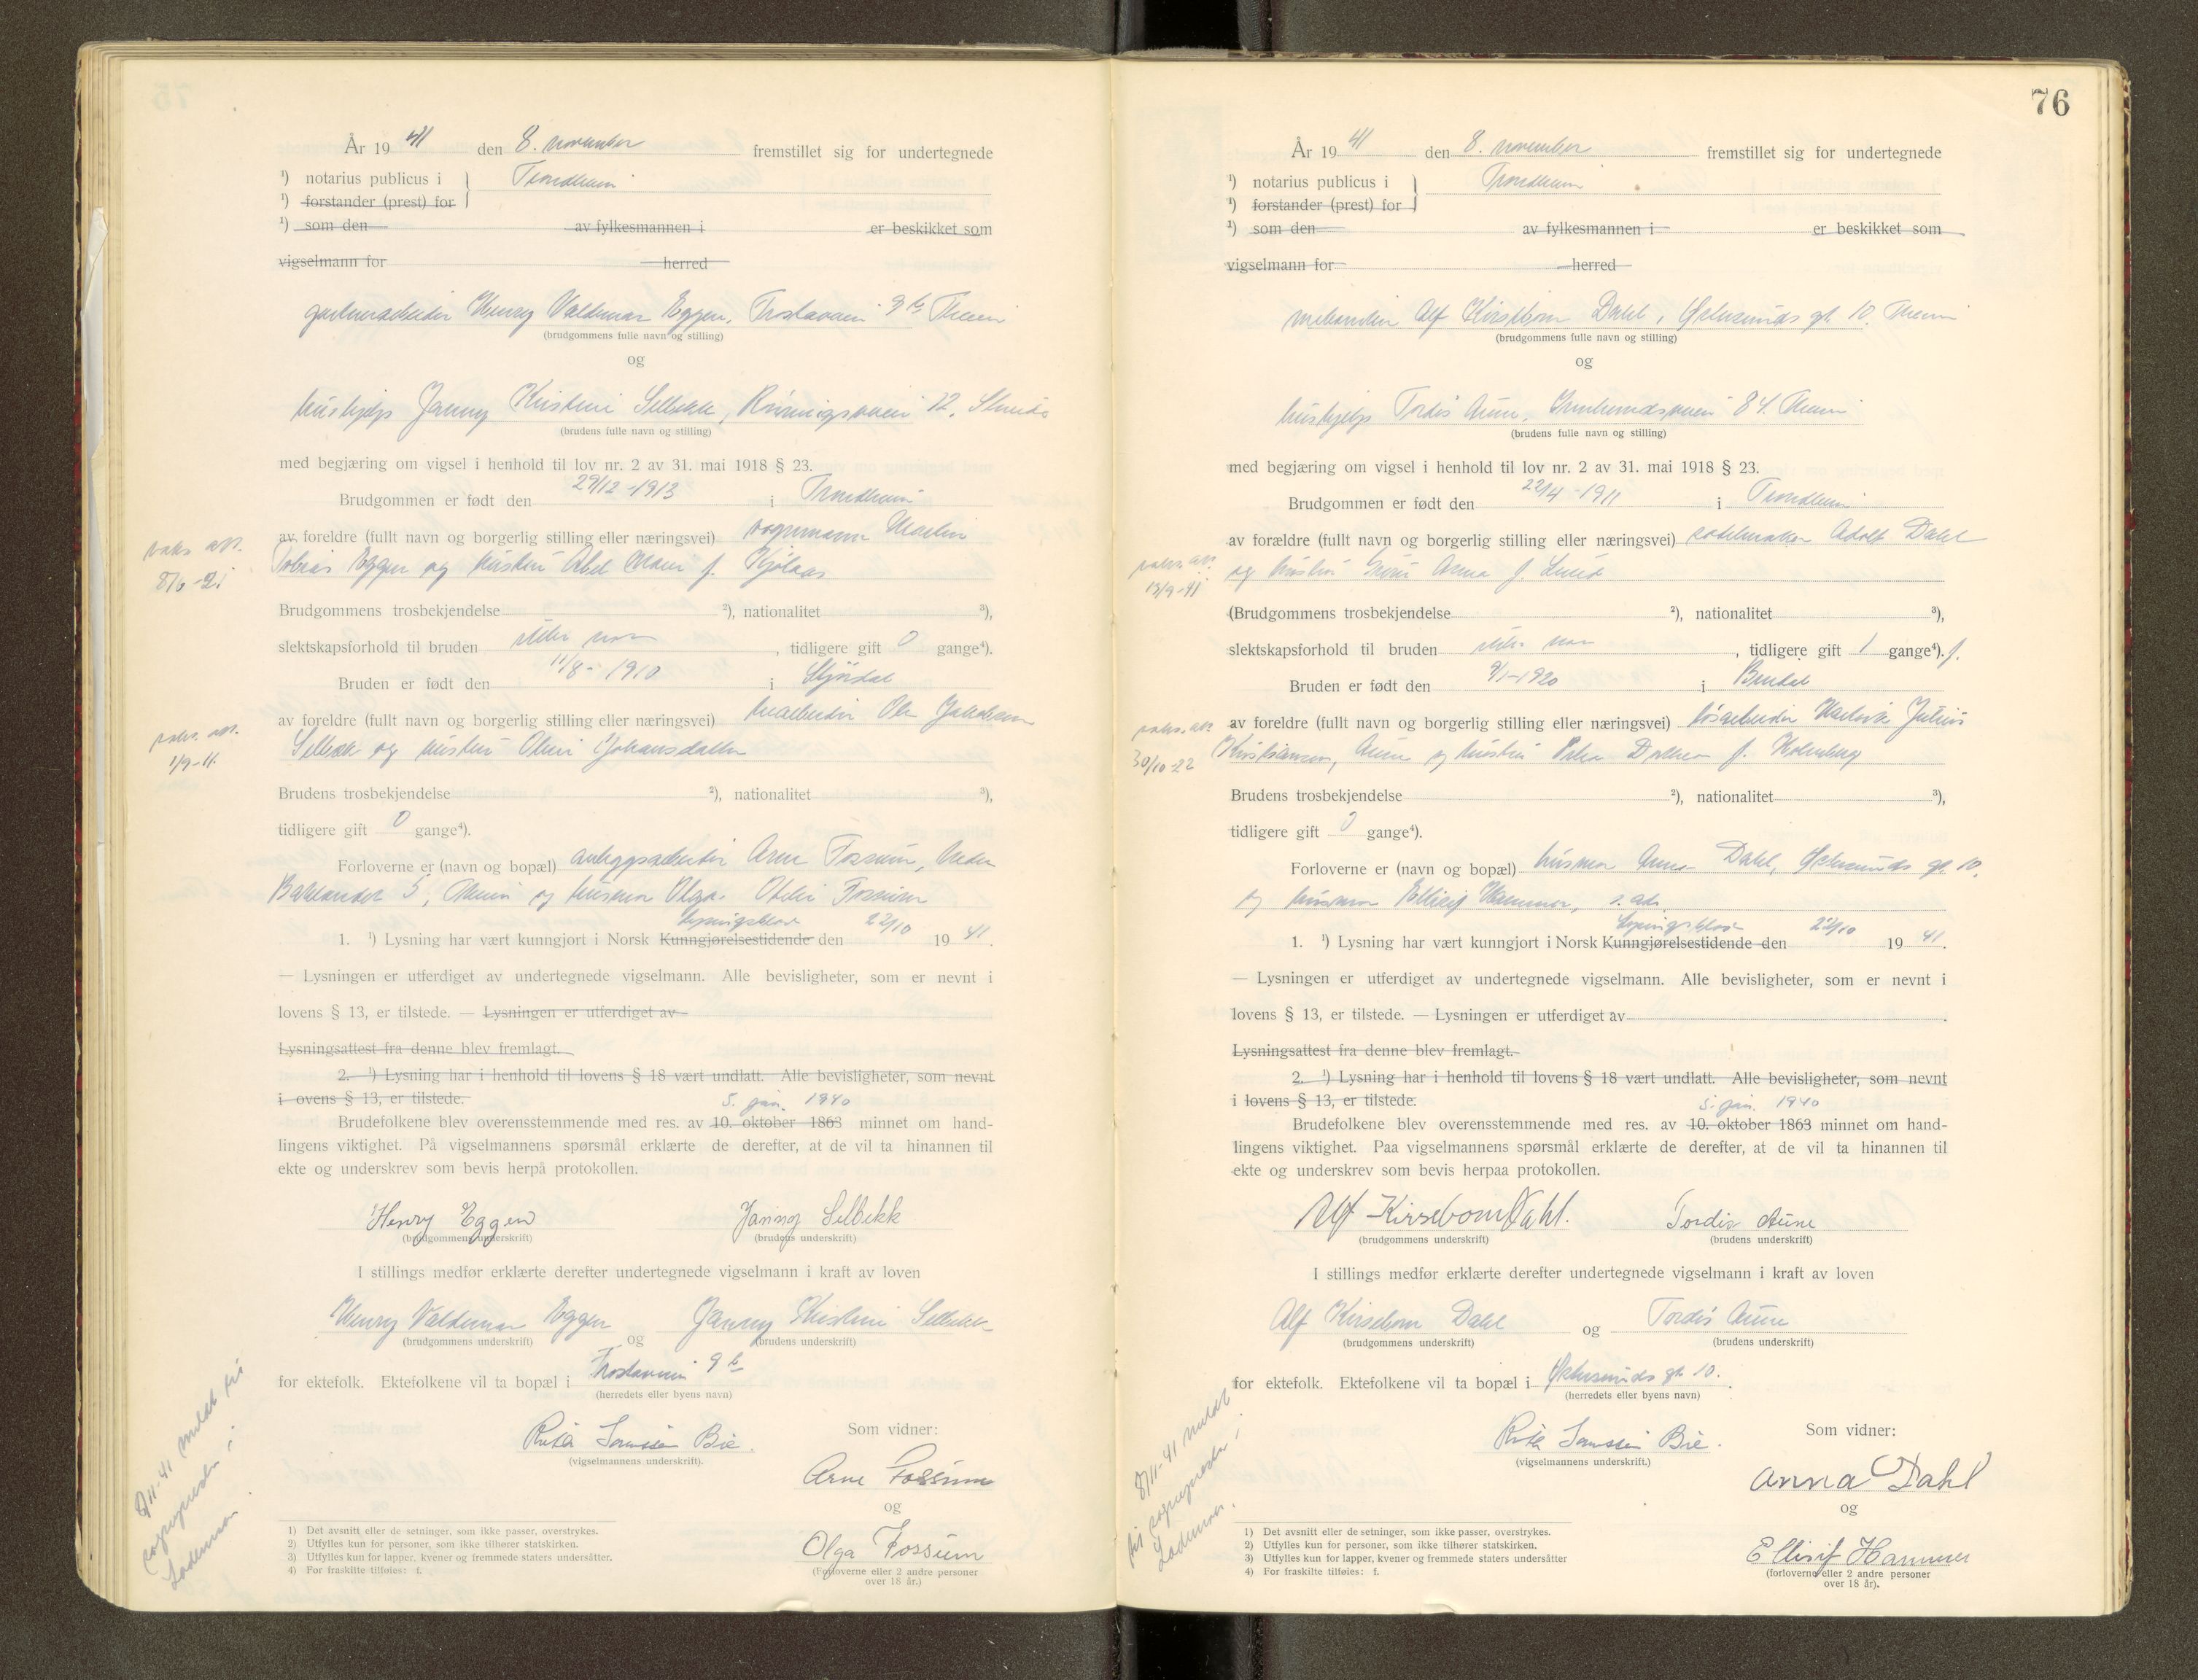 År 19 41 den 8. november fremstillet sig for undertegnede
¹) notarius publicus i Trondheim
¹) forstander (prest) for
¹) som den av fylkesmannen i er beskikket som
vigselmann for herred
Henry Valdemar Eggen,
(brudgommens fulle navn og stilling)
og
hushjelp Janny Kristine Selbekk, 12,
(brudens fulle navn og stilling)
med begjæring om vigsel i henhold til lov nr. 2 av 31. mai 1918 § 23.
Brudgommen er født den 29/12-1913 i Trondheim
av foreldre (fullt navn og borgerlig stilling eller næringsvei) vognmann Martin
Tobias Eggen og hustru Abel Marie f. Kjølaas
vaks. att.
Brudgommens trosbekjendelse ²), nationalitet ³),
slektskapsforhold til bruden tidligere gift 0 gange⁴).
Bruden er født den 11/8-1910 i Stjørdal
av foreldre (fullt navn og borgerlig stilling eller næringsvei) Ole
Selbekk og hustru
vaks. att.
1/9-11.
Brudens trosbekjendelse ²), nationalitet ³),
tidligere gift 0 gange⁴).
Forloverne er (navn og bopæl) anleggsarbeider Arne Fossum,
5, og husmor Olga Fossum
Lysningsblad
1. ¹) Lysning har vært kunngjort i Norsk Kunngjørelsestidende den 22/10 19 41.
— Lysningen er utferdiget av undertegnede vigselmann. Alle bevisligheter, som er nevnt i
lovens § 13, er tilstede. — Lysningen er utferdiget av
Lysningsattest fra denne blev fremlagt.
2. ¹) Lysning har i henhold til lovens § 18 vært undlatt. Alle bevisligheter, som nevnt
i ovens § 13, er tilstede.
5. jan. 1940
Brudefolkene blev overensstemmende med res. av 10. oktober 1863 minnet om hand-
lingens viktighet. På vigselmannens spørsmål erklærte de derefter, at de vil ta hinannen til
ekte og underskrev som bevis herpå protokollen.
Henry Eggen Janny Selbekk
(brudgommens underskrift) (brudens underskrift)
I stillings medfør erklærte derefter undertegnede vigselmann i kraft av loven
Henry Valdemar Eggen og Janny Kristine Selbekk
(brudgommens underskrift) (brudens underskrift)
for ektefolk. Ektefolkene vil ta bopæl i
(herredets eller byens navn)
8/11-41 meldt til
sogneprest i
Lademoen.
Som vidner:
Bie.
(vigselmannens underskrift).
Arne Fossum
og
Olga Fossum
(Forloverne eller 2 andre personer
over 18 år.)
1) Det avsnitt eller de setninger, som ikke passer, overstrykes.
2) Utfylles kun for personer, som ikke tilhører statskirken.
3) Utfylles kun for lapper, kvener og fremmede staters undersåtter.
4) For fraskilte tilføies: f.
76
År 19 41 den 8. november fremstillet sig for undertegnede
¹) notarius publicus i Trondheim
¹) forstander (prest) for
¹) som den av fylkesmannen i er beskikket som
vigselmann for herred
Alf Kirsebom Dahl, gt. 10,
(brudgommens fulle navn og stilling)
og
hushjelp Tordis Aune, 84,
(brudens fulle navn og stilling)
med begjæring om vigsel i henhold til lov nr. 2 av 31. mai 1918 § 23.
Brudgommen er født den 22/4-1911 i Trondheim
av forældre (fullt navn og borgerlig stilling eller næringsvei) Adolf Dahl
og hustru Anna f. Lund
vaks. att.
13/9-41
(Brudgommens trosbekjendelse ²), nationalitet ³),
slektskapsforhold til bruden tidligere gift 1 gange⁴). f.
Bruden er født den 9/1-1920 i
av foreldre (fullt navn og borgerlig stilling eller næringsvei) Julius
Kristiansen Aune og hustru f. Holmberg
vaks. att.
30/10-22
Brudens trosbekjendelse ²), nationalitet ³),
tidligere gift 0 gange⁴).
Forloverne er (navn og bopæl) husmor Anna Dahl, gt. 10,
og husmor Ellisif Hammer, s. ads.
Lysningsblad
1. ¹) Lysning har vært kunngjort i Norsk Kunngjørelsestidende den 19 41.
— Lysningen er utferdiget av undertegnede vigselmann. Alle bevisligheter, som er nevnt i
lovens § 13, er tilstede. — Lysningen er utferdiget av
Lysningsattest fra denne blev fremlagt.
2. ¹) Lysning har i henhold til lovens § 18 vært undlatt. Alle bevisligheter, som nevnt
i lovens § 13, er tilstede.
5. jan. 1940
Brudefolkene blev overensstemmende med res. av 10. oktober 1863 minnet om hand-
lingens viktighet. Paa vigselmannens spørsmål erklærte de derefter, at de vil ta hinannen til
ekte og underskrev som bevis herpaa protokollen.
Alf Kirsebom Dahl. Tordis Aune
(brudgommens underskrift) (brudens underskrift)
I stillings medfør erklærte derefter undertegnede vigselmann i kraft av loven
Alf Kirsebom Dahl og Tordis Aune
(brudgommens underskrift) (brudens underskrift)
for ektefolk. Ektefolkene vil ta bopæl i gt. 10.
(herredets eller byens navn)
8/11-41 meldt
til sogneprest i
Lademoen.
Som vidner:
Bie.
(vigselmannens underskrift.)
Anna Dahl
og
Ellisif Hammer
(forloverne eller 2 andre personer
over 18 år).
1) Det avsnitt eller de setninger, som ikke passer, overstrykes.
2) Utfylles kun for personer, som ikke tilhører statskirken.
3) Utfylles kun for lapper, kvener og fremmede staters undersåtter
4) For fraskilte tilføies: f.